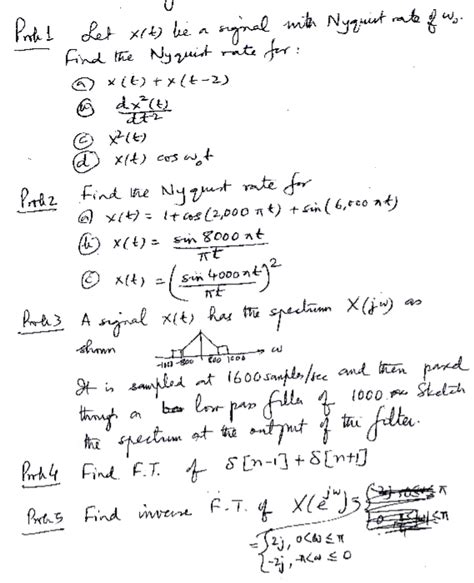 Prob 1 Let x(t) be a signal with Nyquist rate of ω₀.
Find the Nyquist rate for:
(a) x(t) + x(t-2)
(b) dx²(t)/dt²
(c) x²(t)
(d) x(t) cos ω₀t
Prob 2 Find the Nyquist rate for
(a) x(t) = 1 + cos(2,000 πt) + sin(6,000 πt)
(b) x(t) = sin 8000 πt / πt
(c) x(t) = (sin 4000 πt / πt)²
Prob 3 A signal x(t) has the spectrum X(jω) as
shown
-800 800 1000 → ω
It is sampled at 1600 samples/sec and then passed
through a low pass filter of 1000. Sketch
the spectrum at the output of the filter.
Prob 4 Find F.T. of δ[n-1] + δ[n+1]
Prob 5 Find inverse F.T. of X(e^jω)
= { 2j, 0<ω≤π
-2j, -π<ω≤0